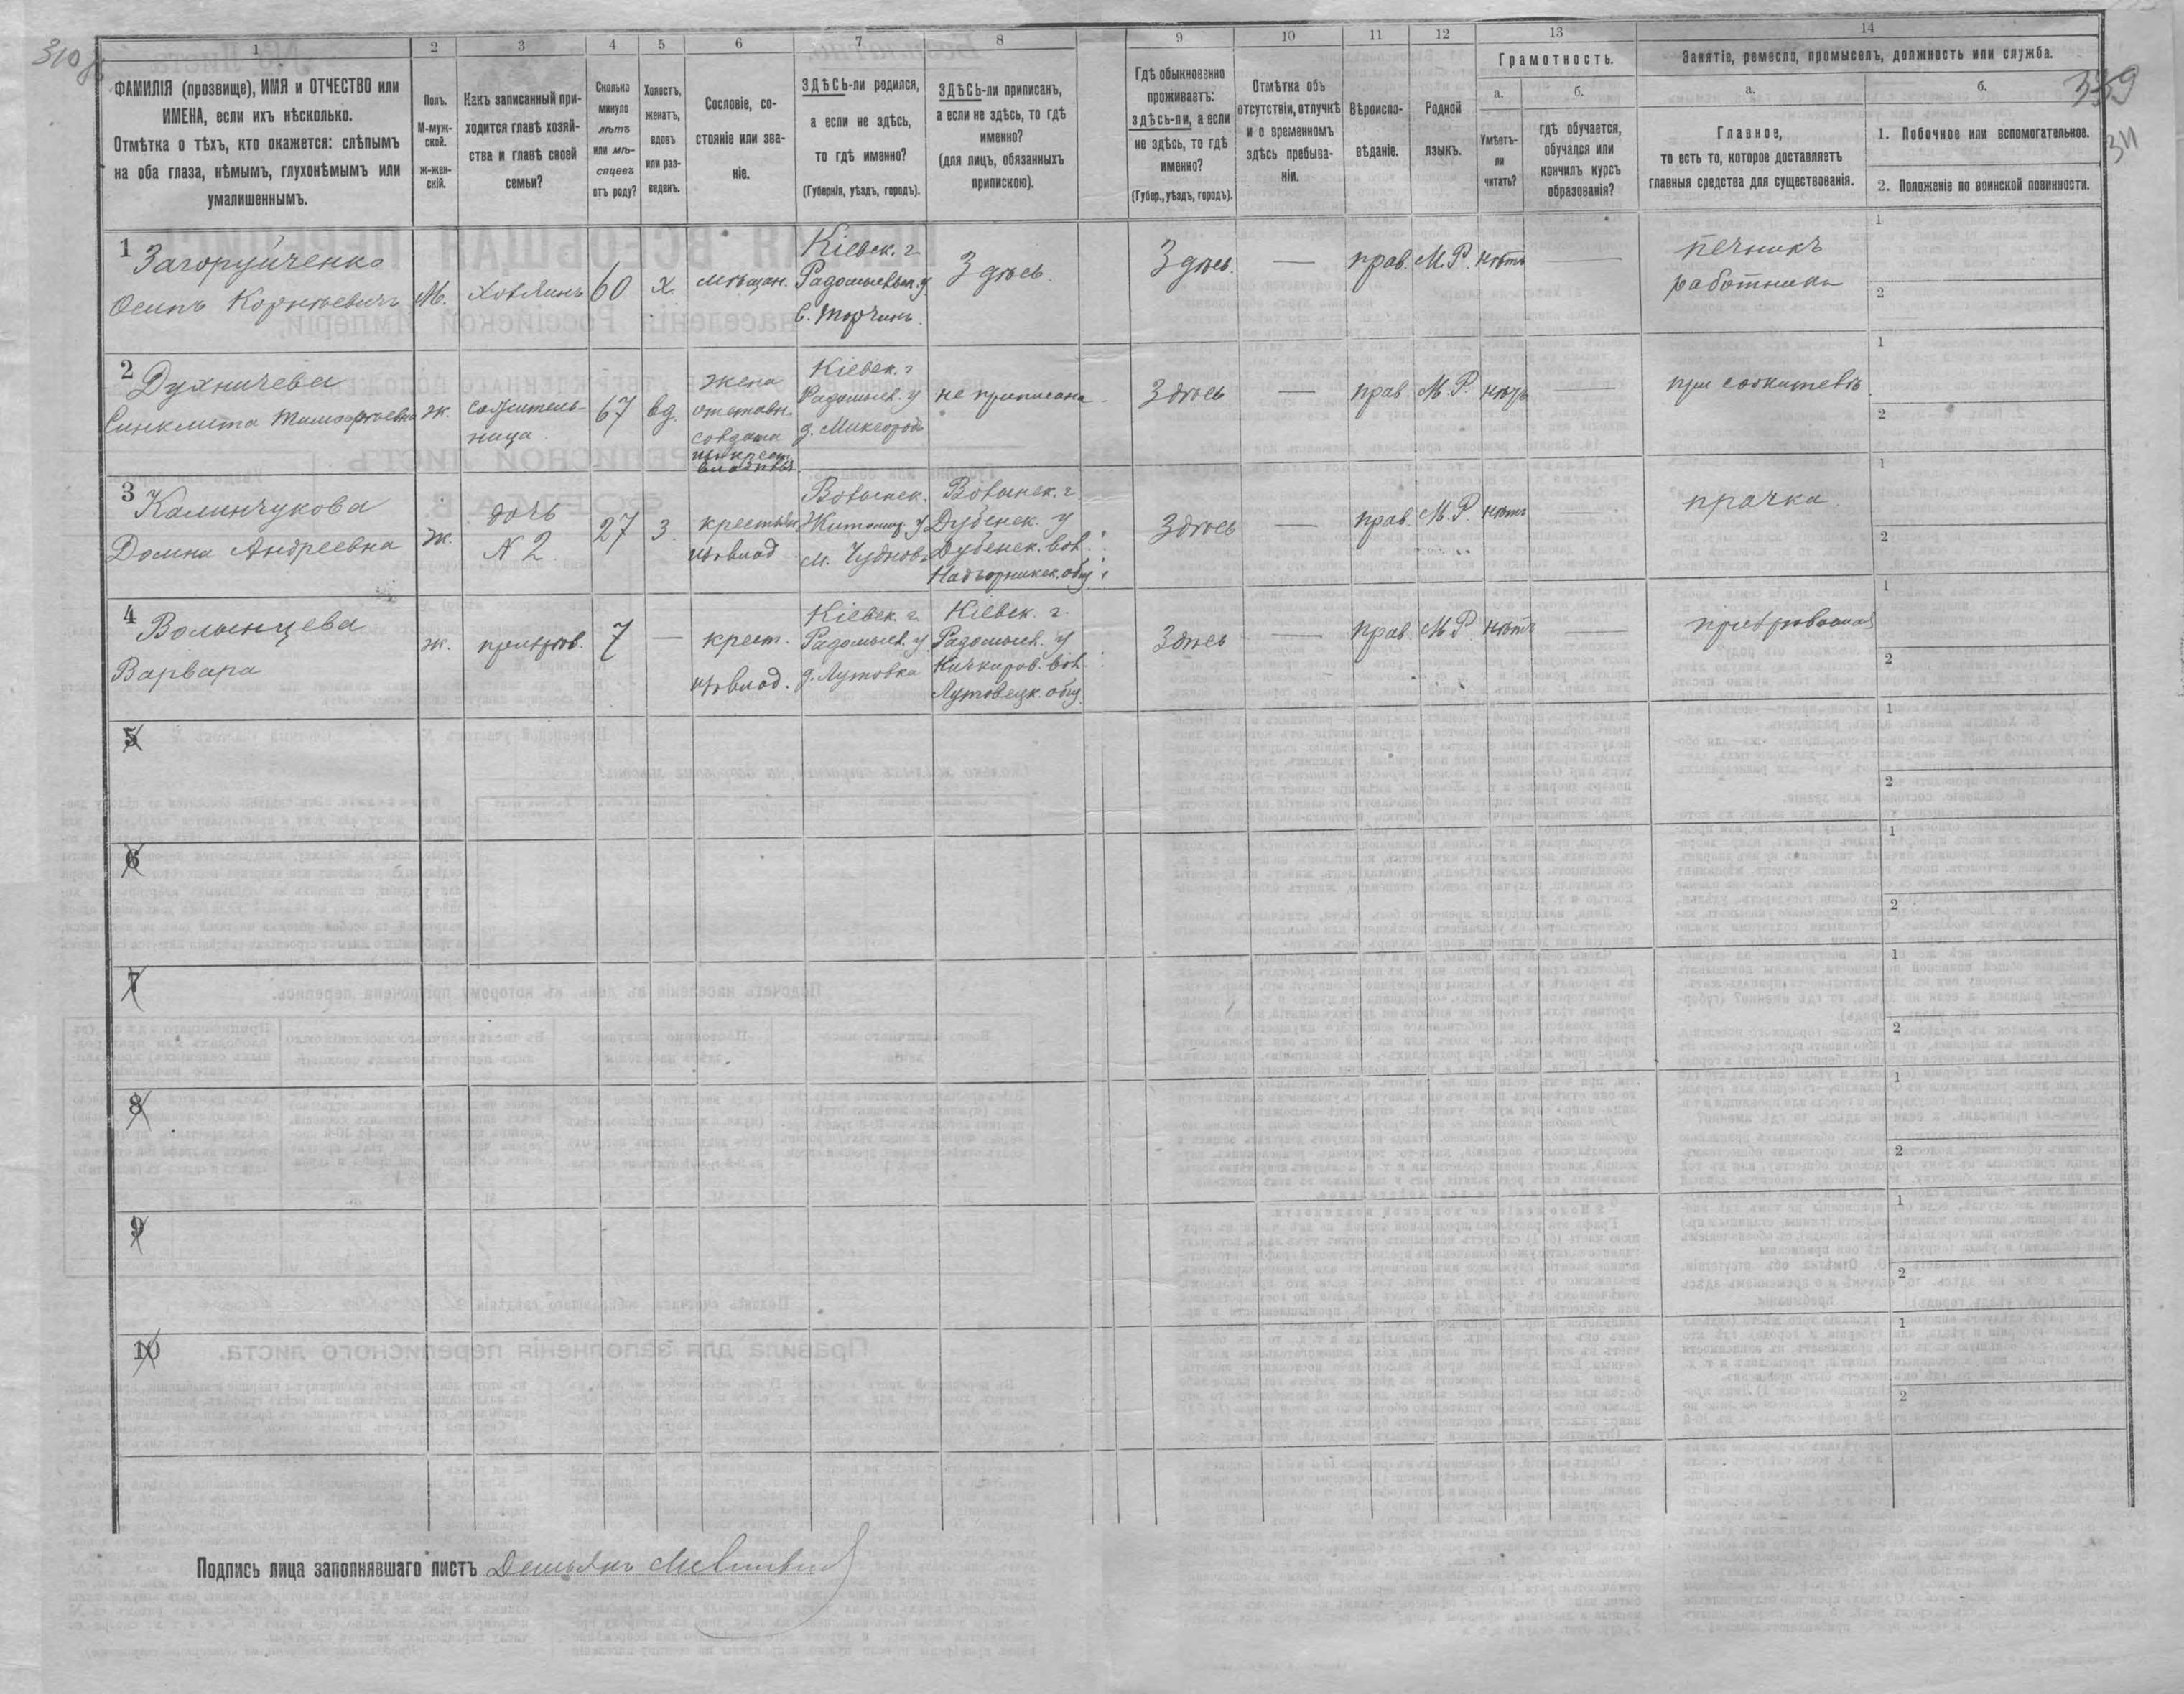 310
359
311
1 2 3 4 5 6 7 8 9 10 11 12 13 14
ФАМИЛІЯ (прозвище), ИМЯ и ОТЧЕСТВО или ИМЕНА, если ихъ нѣсколько.
Отмѣтка о тѣхъ, кто окажется: слѣпымъ на оба глаза, нѣмымъ, глухонѣмымъ или умалишеннымъ.
Полъ.
М-муж-
ской.
ж-жен-
скій.
Какъ записанный при-
ходится главѣ хозяй-
ства и главѣ своей
семьи?
Сколько
минуло
лѣтъ
или мѣ-
сяцевъ
отъ роду?
Холостъ,
женатъ,
вдовъ
или раз-
веденъ.
Сословіе, со-
стояніе или зва-
ніе.
ЗДѢСЬ-ли родился,
а если не здѣсь,
то гдѣ именно?
(Губернія, уѣздъ, городъ).
ЗДѢСЬ-ли приписанъ,
а если не здѣсь, то гдѣ
именно?
(для лицъ, обязанныхъ
припискою).
Гдѣ обыкновенно
проживаетъ:
здѣсь-ли, а если
не здѣсь, то гдѣ
именно?
(Губер., уѣздъ, городъ).
Отмѣтка объ
отсутствіи, отлучкѣ
и о временномъ
здѣсь пребыва-
ніи.
Вѣроиспо-
вѣданіе.
Родной
языкъ.
Грамотность.
а.
Умѣетъ-
ли
читать?
б.
гдѣ обучается,
обучался или
кончилъ курсъ
образованія?
Занятіе, ремесло, промыселъ, должность или служба.
а.
Главное,
то есть то, которое доставляетъ
главныя средства для существованія.
б.
1. Побочное или вспомогательное.
2. Положеніе по воинской повинности.
1
Загоруйченко
Осипъ Корнѣевичъ
М.
хозяинъ
60
х
мѣщан.
Кіевск. г.
Радомысльск. у
с. Торчинъ
Здѣсь.
Здѣсь.
—
прав.
М. Р.
нѣтъ
—
печникъ
работникъ
1
2
2
Духничева
Синклита Тимофѣевна
ж.
сожитель-
ница
67
вд.
жена
отставн.
солдата
изъ крест.
Кіевск. г
Радомысл. у
не приписана
Здѣсь
—
прав.
М. Р.
нѣтъ
—
при сожителѣ
1
2
3
Калинчукова
Домна Андреевна
ж.
дочь
N 2
27
З.
Волынск.
Житомир. у
м. Чудновъ
Волынск. г.
Дубенск. у
Дубенск. вол.
Здѣсь
—
прав.
М. Р.
нѣтъ
—
прачка
1
2
4
Волынцева
Варвара
ж.
7
—
крест.
Кіевск. г.
Радомысл. у
д. Лутовка
Кіевск. г.
Радомысл. у
Кичкиров. вол.
Лутовецк. общ.
Здѣсь
—
прав.
М. Р.
нѣтъ
—
1
2
5
1
2
6
1
2
7
1
2
8
1
2
9
1
2
10
1
2
Подпись лица заполнявшаго листъ Демьянъ